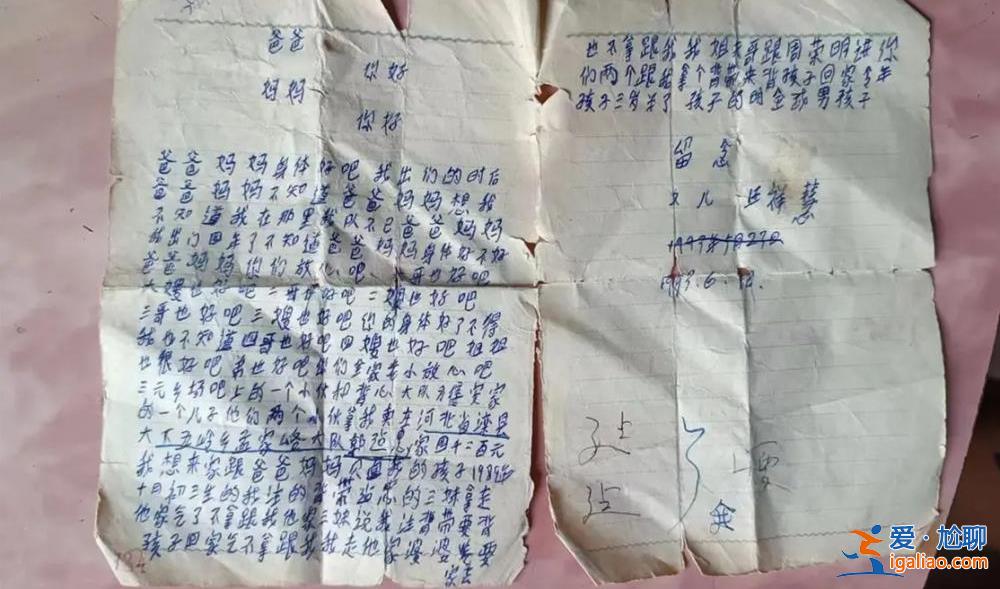 爸爸
你好
妈妈
你好
爸爸妈妈身体好吧我出们的时后
爸爸妈妈不知道爸爸妈妈想我
不知道我在那里我队不已爸爸妈妈
我出门回来了不知道爸爸妈妈身体好不好
爸爸妈妈你们放心吧大哥也好吧
大嫂也好吧二哥也好吧二嫂也好吧
三哥也好吧三嫂也好吧你的身体好了不得
我也不知道四哥也好吧四嫂也好吧姐姐
也很好吧弟也好吧你们全家老小放心吧
三元乡场吧上的一个小伙和背心大队
的一个儿子他们两个小伙拿我卖在河北省滦县
大下五岭乡孟家峪大队家四十二百元
我想来家跟爸爸妈妈见面我的孩子1989年
十月初三生的我的背带的三妹拿走
他家乞了不拿跟我他家三妹说我背带要背
孩子回家乞不拿跟我我走他家婆婆要
家去
也不拿跟我我姐夫哥跟周荣明进你
们两个跟我拿个背带来背孩子回家今年
孩子三岁关了孩子的明全球男孩子
留念
女儿 丘祥慧
6.12.
金
要
爱·尬聊
igaliao.com